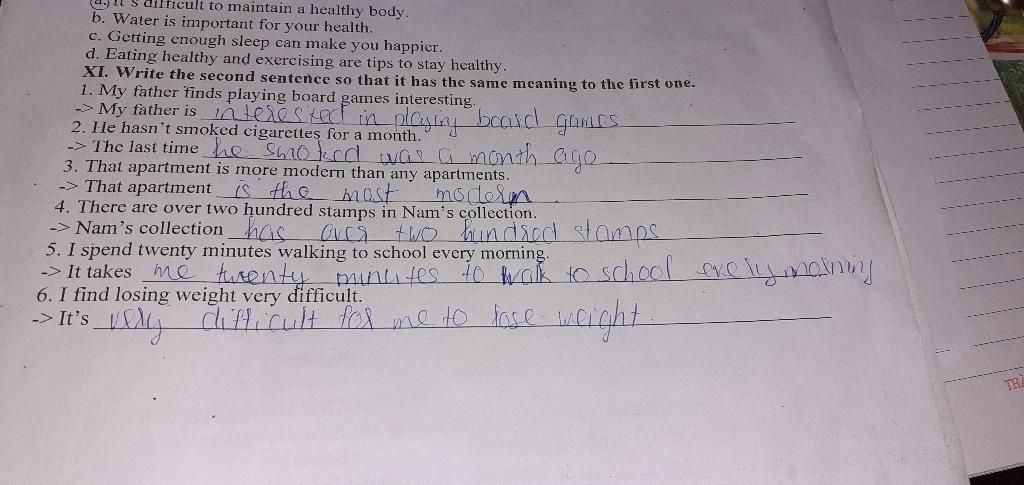 (a.) It's difficult to maintain a healthy body.
b. Water is important for your health.
c. Getting enough sleep can make you happier.
d. Eating healthy and exercising are tips to stay healthy.
XI. Write the second sentence so that it has the same meaning to the first one.
1. My father finds playing board games interesting.
-> My father is interested in playing board games
2. He hasn't smoked cigarettes for a month.
-> The last time he smoked was a month ago
3. That apartment is more modern than any apartments.
-> That apartment is the most modern
4. There are over two hundred stamps in Nam's collection.
-> Nam's collection has over two hundred stamps
5. I spend twenty minutes walking to school every morning.
-> It takes me twenty minutes to walk to school every morning
6. I find losing weight very difficult.
-> It's very difficult for me to lose weight.